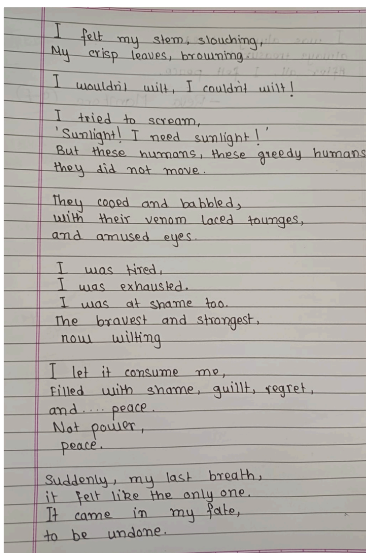 I felt my stem, slouching,
My crisp leaves, browning.
I wouldn't wilt, I couldn't wilt!
I tried to scream,
'Sunlight! I need sunlight!'
But these humans, these greedy humans
they did not move.
They cooed and babbled,
with their venom laced tounges,
and amused eyes.
I was tired,
I was exhausted.
I was at shame too.
The bravest and strongest,
now wilting
I let it consume me,
Filled with shame, guillt, regret,
and.... peace.
Not power,
peace.
Suddenly, my last breath,
it felt like the only one.
It came in my fate,
to be undone.